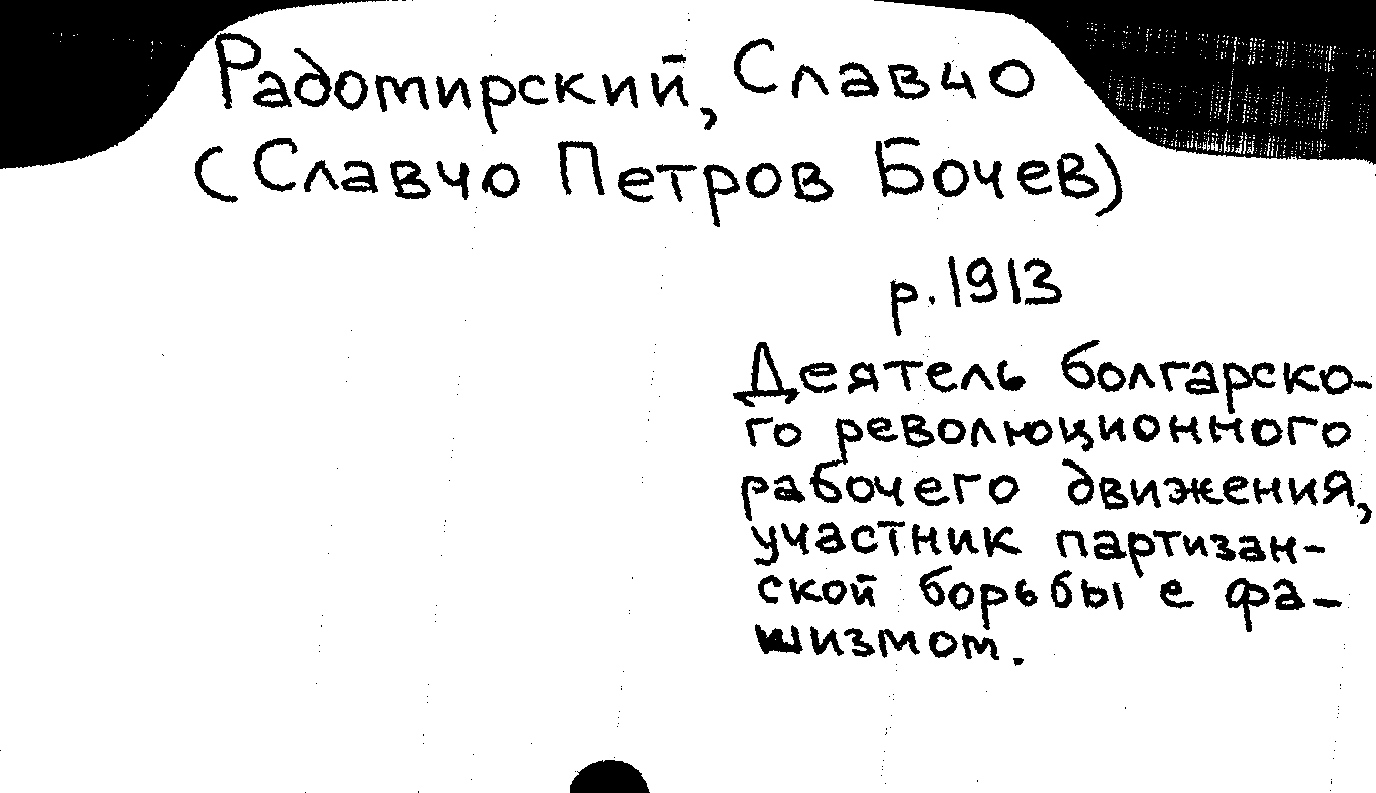 Радомирский, Славчо
(Славчо Петров Бочев)
р. 1913
Деятель болгарско-
го революционного
рабочего движения,
участник партизан-
ской борьбы с фа-
шизмом.